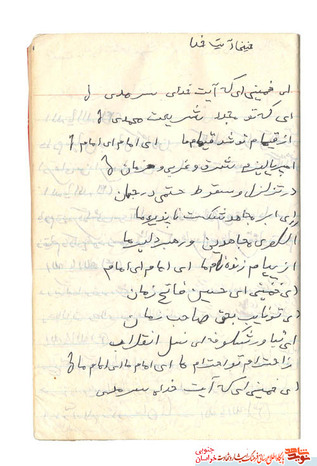 خمینی آیت خدا
ای خمینی ای که آیت خدای سرمدی
ای که تو مجدد شریعت محمدی
از قیام تو شد قیام ما ای امام ای امام
امپریالیزم شرق و غرب و هر زمان
در تزلزل و سقوط حتمی در جهان
ای مجاهد شکست ناپذیر ما
الگوی مجاهدین و رهبر دلیر ما
از پیام زنده نام ما ای امام ای امام
ای خمینی ای حسین فاتح زمان
ای تو نایب بحق صاحب زمان
ای شکوفه ای نسل انقلاب
ز احترام تو احترام ما ای امام ما ای امام ما
ای خمینی ای که آیت خدای سرمدی